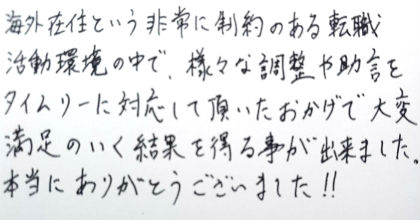 海外在住という非常に制約のある転職
活動環境の中で、様々な調整や助言を
タイムリーに対応して頂いたおかげで大変
満足のいく結果を得る事が出来ました。
本当にありがとうございました!!